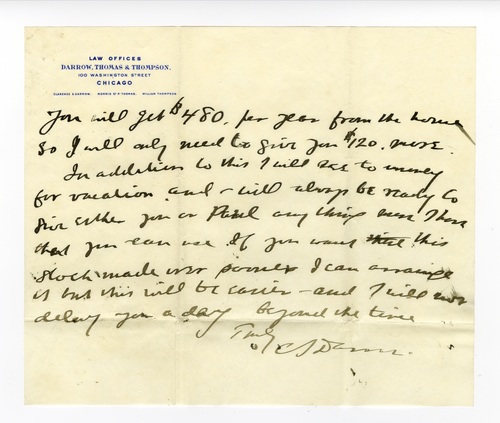 LAW OFFICES
DARROW, THOMAS & THOMPSON.
100 WASHINGTON STREET
CHICAGO
CLARENCE S. DARROW. MORRIS ST. P. THOMAS. WILLIAM THOMPSON.
You will get $480. per year from the home
so I will only need to give you $120. more.
In addition to this I will see to money
for vacation and - will always be ready to
give either you or Paul any thing more than
that you can use If you want this
stock made over sooner I can arrange
it but this will be easier - and I will not
delay you a day beyond the time
Truly
C S Darrow.